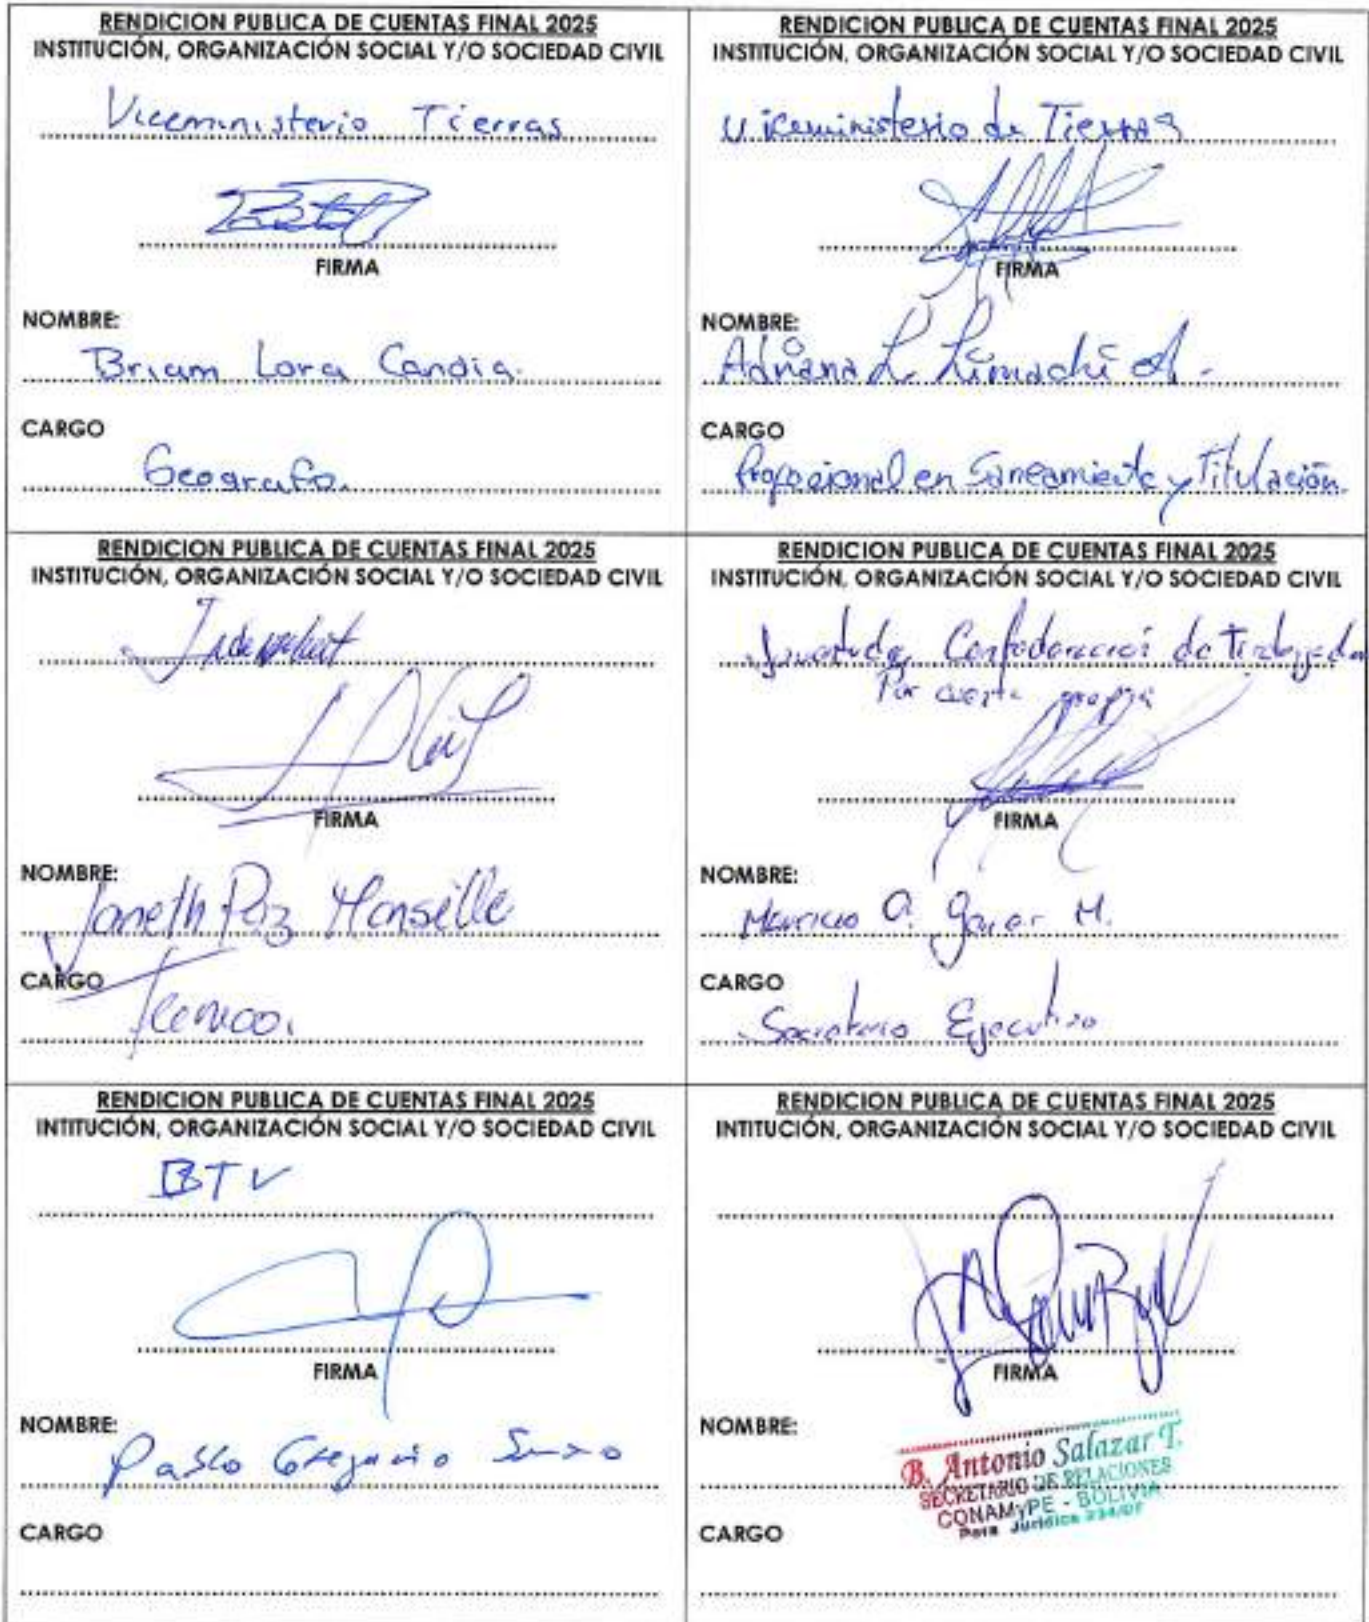 RENDICION PUBLICA DE CUENTAS FINAL 2025
INSTITUCIÓN, ORGANIZACIÓN SOCIAL Y/O SOCIEDAD CIVIL
Viceministerio Tierras
FIRMA
NOMBRE:
Briam Lora Candia.
CARGO
Geografo.
RENDICION PUBLICA DE CUENTAS FINAL 2025
INSTITUCIÓN, ORGANIZACIÓN SOCIAL Y/O SOCIEDAD CIVIL
Viceministerio de Tierras
FIRMA
NOMBRE:
Adriana L. Limachi A.
CARGO
Profesional en Saneamiento y Titulación.
RENDICION PUBLICA DE CUENTAS FINAL 2025
INSTITUCIÓN, ORGANIZACIÓN SOCIAL Y/O SOCIEDAD CIVIL
FIRMA
NOMBRE:
Janeth Paz
CARGO
Tecnico.
RENDICION PUBLICA DE CUENTAS FINAL 2025
INSTITUCIÓN, ORGANIZACIÓN SOCIAL Y/O SOCIEDAD CIVIL
Confederación de
Por cuenta propia
FIRMA
NOMBRE:
Mauricio M.
CARGO
Secretario Ejecutivo
RENDICION PUBLICA DE CUENTAS FINAL 2025
INTITUCIÓN, ORGANIZACIÓN SOCIAL Y/O SOCIEDAD CIVIL
BTV
FIRMA
NOMBRE:
Pablo Gregorio
CARGO
RENDICION PUBLICA DE CUENTAS FINAL 2025
INTITUCIÓN, ORGANIZACIÓN SOCIAL Y/O SOCIEDAD CIVIL
FIRMA
NOMBRE:
B. Antonio Salazar T.
SECRETARIO DE RELACIONES
CONAMyPE - BOLIVIA
Pers Juridica
CARGO